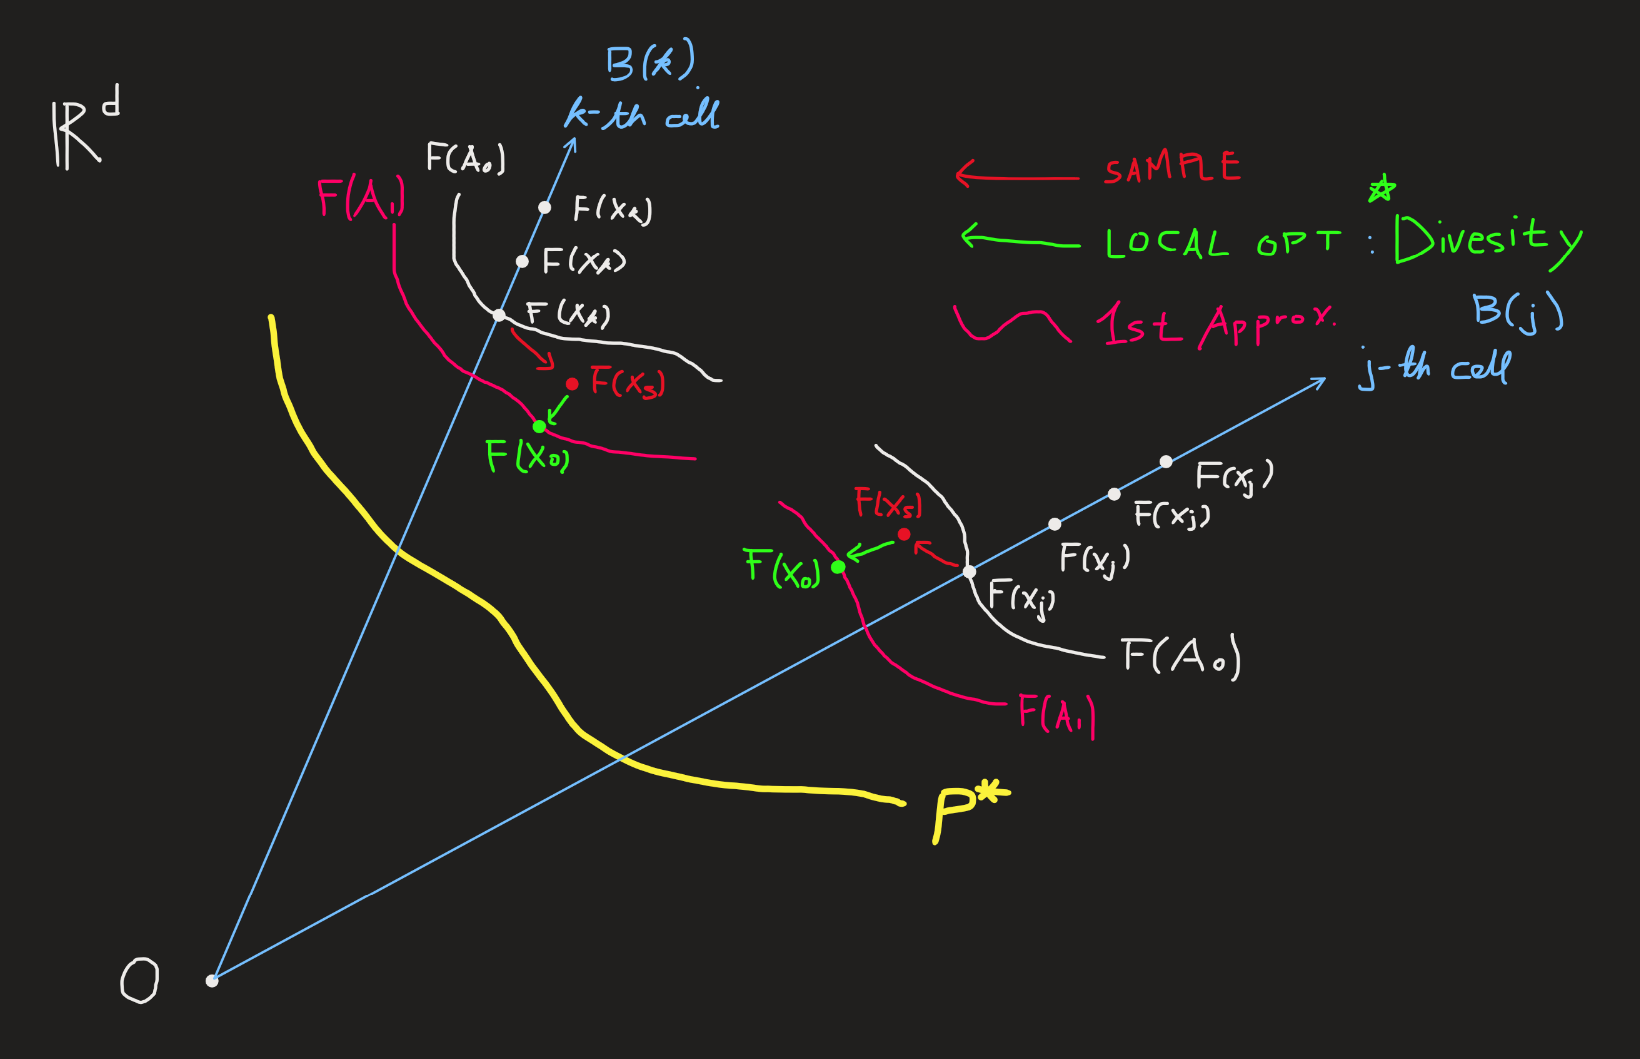 ℝᵈ
B(k)
k-th cell
F(A₀)
F(A₁)
F(xₖ)
F(xₖ)
F(xₖ)
F(xₛ)
F(x₀)
SAMPLE
LOCAL OPT : Divesity
1st Approx.
B(j)
j-th cell
F(xⱼ)
F(xⱼ)
F(xⱼ)
F(xⱼ)
F(xₛ)
F(x₀)
F(A₀)
F(A₁)
P*
O